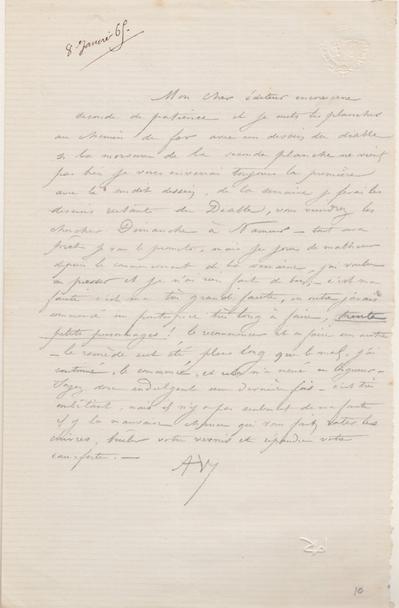 8 Janvier 65.
Mon cher éditeur encore une
seconde de patience et je mets les planches
au chemin de fer avec un dessin du diable
si la morsure de la seconde planche ne vient
pas bien je vous enverrai toujours la première
avec le dessin, de la semaine je ferai les
dessins restant du Diable, vous viendrez les
chercher Dimanche à Namur – tout sera
prêt je vous le promets, mais je joue de malheur
depuis le commencement de la semaine – j'ai voulu
me presser et je n'ai rien fait de bon, – c'est ma
faute c'est ma très grande faute, en outre j'avais
commencé un frontispice très long à faire, trente
petits personnages! le recommencer et en faire un autre
– le remède eut été plus long que le mal, j'ai
continué, le commencé, et
Soyez donc indulgent une dernière fois – c'est très
embêtant, mais il n'y a pas seulement de ma faute
il y a la mauvaise chance qui vous fait rater les
cuivres, brûler votre vernis et répandre votre
eau-forte. –
10